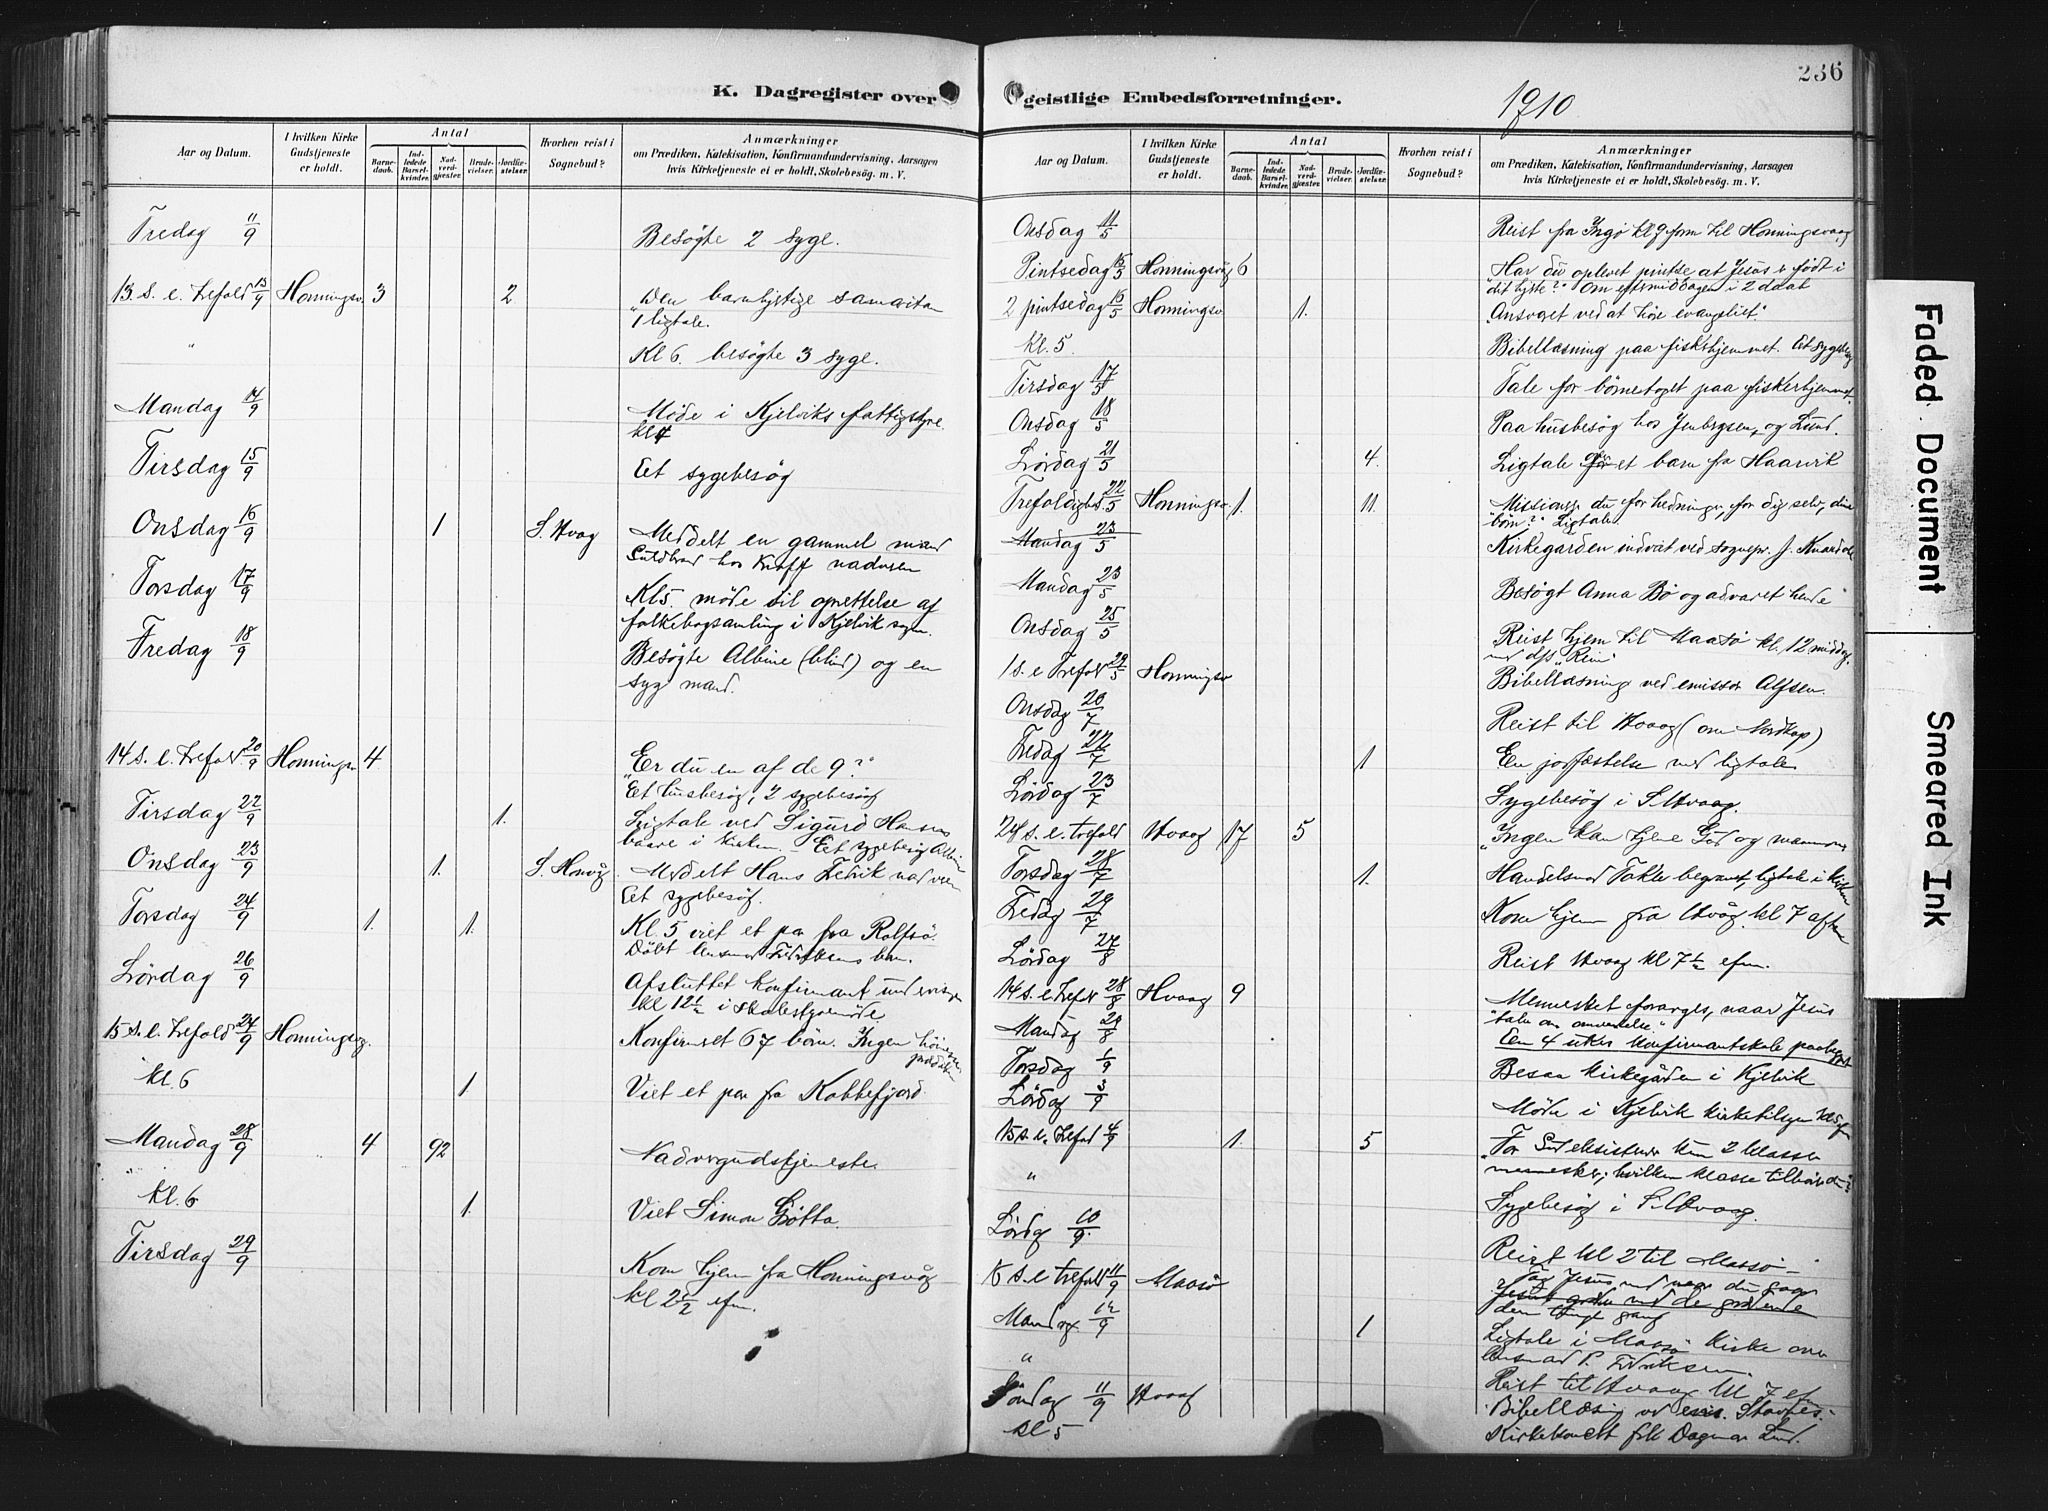 K. Dagregister over
Aar og Datum.
I hvilken Kirke Gudstjeneste er holdt.
Antal
Barne-daab.
Ind-ledede Barsel-kvinder.
Nad-verd-gjester.
Brude-vielser.
Jordfæ-stelser.
Hvorhen reist i Sognebud?
Anmærkninger
om Prædiken, Katekisation, Konfirmandundervisning, Aarsagen
hvis Kirketjeneste ei er holdt, Skolebesøg. m. V.
Fredag 11/9 Besøgte 2 syge.
13. s. e. trefold 13/9 Honningsv. 3 2 "Den barmhjertige samaritan
1 ligtale.
" Kl 6. besøgte 3 syge.
Mandag 14/9 Møde i Kjelviks fattigstyre
kl 4
Tirsdag 15/9 Eet sygebesøg
Onsdag 16/9 1 S. Hvag Meddelt en gammel mand
hos nadveren
Torsdag 17/9 Kl 5. møde til oprettelse af
folkebogsamling i Kjelvik sogn.
Fredag 18/9 Besøgte Albine (blind) og en
syg mand.
14 s. e. trefold 20/9 Honningsv 4 "Er du en af de 9?"
Et husbesøg, 2 sygebesøg
Tirsdag 22/9 1. Ligtale ved Sigurd Hansens
baare i kirken. – Eet sygebesøg Albine
Onsdag 23/9 1. S. Honvåg. Meddelt Hans nadveren
Eet sygebesøg.
Torsdag 24/9 1. 1. Kl. 5 viet et par fra Rolfsø.
Døbt barn.
Lördag 26/9 Afsluttet konfirmantundervisningen
kl 12½ i
15 s. e. trefold 27/9 Honningsvg. Konfirmeret 67 börn. Ingen
kl. 6 1 Viet et par fra Kobbefjord.
Mandag 28/9 4 92 Nadvergudstjeneste.
" kl. 6 1. Viet Simon Gjøtta.
Tirsdag 29/9 Kom hjem fra Honningsvåg
kl 2½ efm.
geistlige Embedsforretninger.
1910
236
Aar og Datum.
I hvilken Kirke Gudstjeneste er holdt.
Antal
Barne-daab.
Ind-ledede Barsel-kvinder.
Nad-verd-gjester.
Brude-vielser.
Jordfæ-stelser.
Hvorhen reist i Sognebud?
Anmærkninger
om Prædiken, Katekisation, Konfirmandundervisning, Aarsagen
hvis Kirketjeneste ei er holdt, Skolebesøg. m. V.
Onsdag 11/5 Reist fra Ingø kl 9 form til Honningsvaag
Pintsedag 15/5 Honningsvåg 6 Har du oplevet pintse at Jesus er født i
dit hjerte?" Om eftermiddagen i 2 daab
2 pintsedag 16/5 Honningsv 1. "Ansvaret ved at høre evangeliet."
kl. 5 Bibellæsning paa fiskerhjemmet. Eet sygebesøg
Tirsdag 17/5 Tale for børnetoget paa fiskerhjemmet.
Onsdag 18/5 Paa husbesøg hos og Lund.
Lördag 21/5 4. Ligtale over et barn fra Haarvik
Trefoldighed 22/5 Honningsv. 1. 11. Missionerer du for hedninge, for dig selv, dine
børn?" Ligtale.
Mandag 23/5 Kirkegarden indviet ved sognepr.
Mandag 23/5 Besøgt Anna Bø og advaret hende
Onsdag 25/5 Reist hjem til Maasø kl. 12 middag.
med dfs "Rein"
1 s. e Trefold 29/5 Honningsv Bibellæsning ved emissær Alfsen.
Onsdag 20/7 Reist til Hvaag (om Nordkap)
Fredag 22/7 1 En jordfæstelse med ligtale
Lördag 23/7 Sygebesøg i S. Hvaag.
24 s. e. trefold Hvaag 17 5 "Ingen kan tjene Gud og mammon
Torsdag 28/7 1. Handelsmand begravet, ligtale i kirken
Fredag 29/7 Kom hjem fra Hvåg. kl 7 aften
Lördag 27/8 Reist Hvaag kl 7½ efm.
14 s. e. Trefol 28/8 Hvaag 9 Mennesket forarges, naar Jesus
taler om omvendelse."
Mandag 29/8 Den 4 ukers konfirmantskole paabegynt
Torsdag 1/9 Besaa kirkegården i Kjelvik
Lördag 3/9 Møde i Kjelvik kirketilsyn kl 5
15 s. e. trefol 4/9 1. 5 "For Gud eksisterer kun 2 klasser
mennesker, hvilken klasse tilhører du?
" Sygebesøg i S. Hvaag.
Lördag 10/9. Reist kl 2 til Maasø –
s. e trefold 11/9 Maasø Tag Jesus med naar du gaar
den tunge gang
Mandag 12/9 1 Ligtale i Maasø kirke over
" Reist til Hvaag kl 7 efm
Söndag 11/9 Hvaag Bibellæsning ved
kl 5 Kirkekoncert frk Dagmar Lund.
Faded Document
Smeared Ink